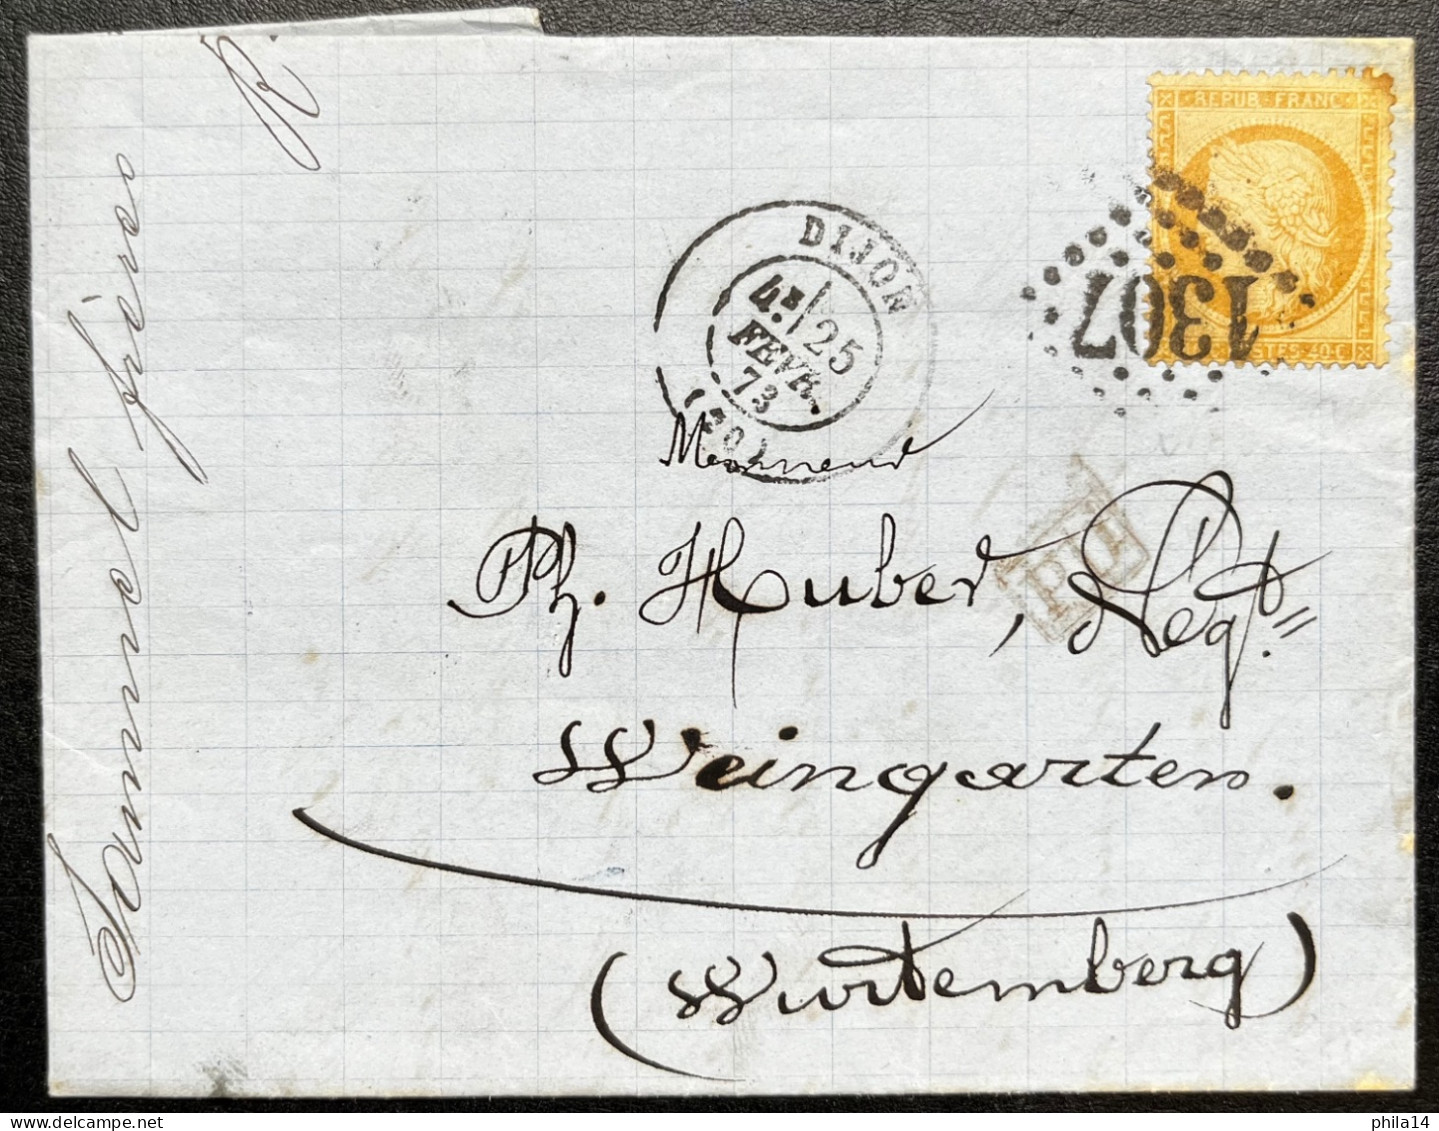 Samuel frères
R.
REPUB. FRANC.
POSTES. 40. C
1307
DIJON
4E 25
FEVR.
73
(20)
PD
Monsieur
Ph. Huber, Negt.
Weingarten.
(Wurtemberg)
phila14